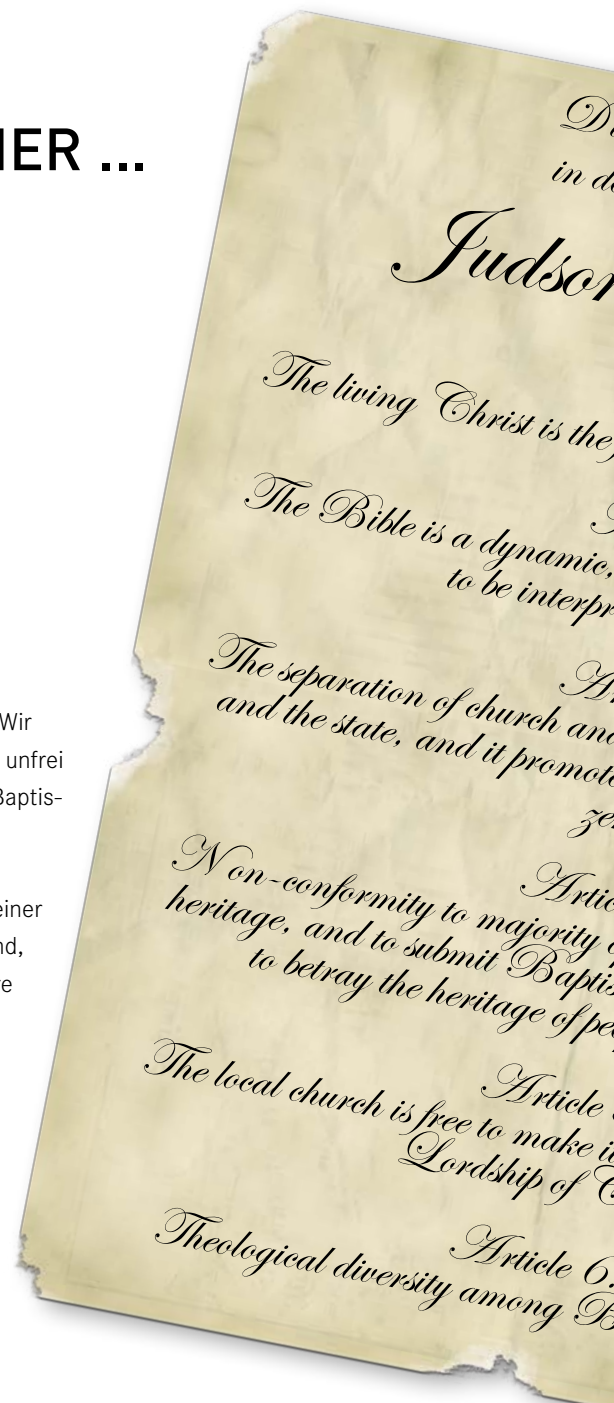 IER ...
Di
in de
Judson
The living Christ is the
The Bible is a dynamic,
to be interpr
Ar
The separation of church and
and the state, and it promote
zen
Wir
unfrei
Baptis-
Artic
Non-conformity to majority o
heritage, and to submit Baptis
to betray the heritage of peo
einer
nd,
e
Article
The local church is free to make i
Lordship of C
Article 6.
Theological diversity among B